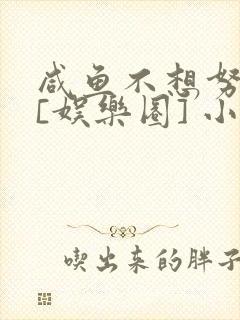 咸鱼不想努
[娱乐圈] 小
喫出来的胖子